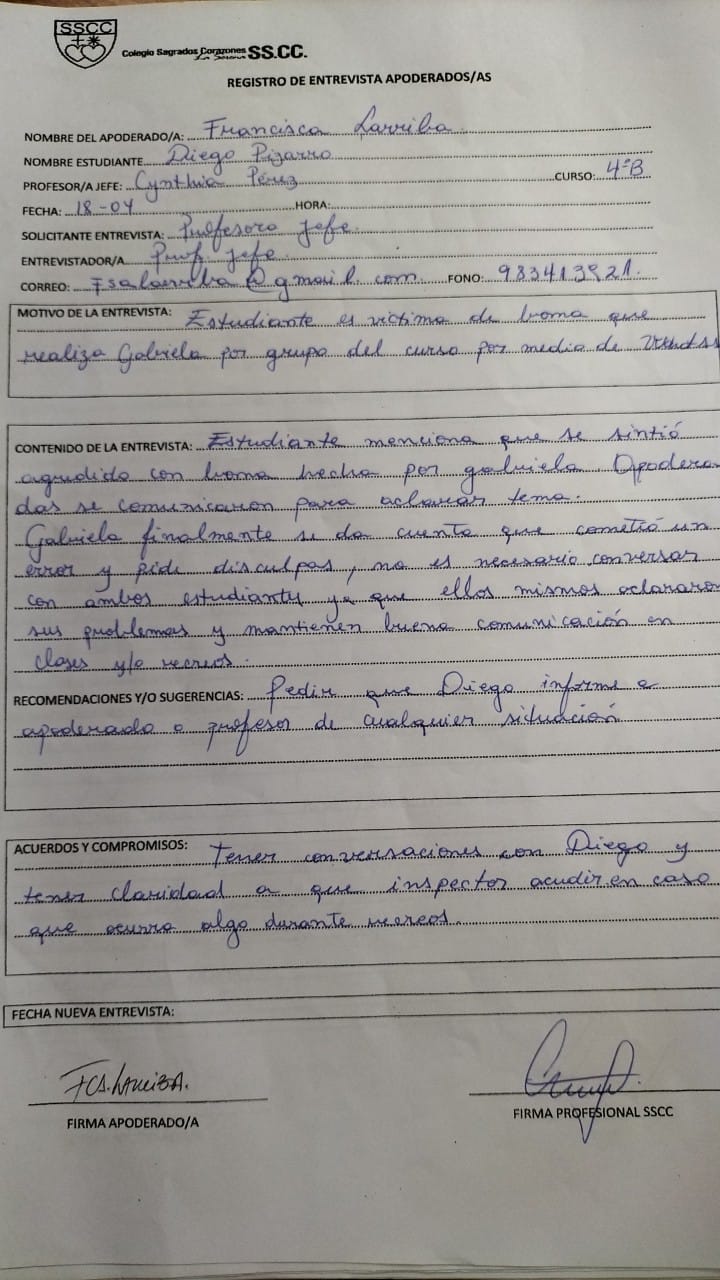 SSCC
Colegio Sagrados Corazones SS.CC.
La Serena
REGISTRO DE ENTREVISTA APODERADOS/AS
NOMBRE DEL APODERADO/A: Francisca Larriba
NOMBRE ESTUDIANTE Diego Pizarro
PROFESOR/A JEFE: Cynthia Pérez CURSO: 4°B
FECHA: 18-04 HORA:
SOLICITANTE ENTREVISTA: Profesora Jefe.
ENTREVISTADOR/A Prof. Jefe.
CORREO: Fsalarriba@gmail.com FONO: 983413921.
MOTIVO DE LA ENTREVISTA: Estudiante es víctima de broma que
realiza Gabriela por grupo del curso por medio de
CONTENIDO DE LA ENTREVISTA: Estudiante menciona que se sintió
agredido con broma hecha por gabriela. Apodera
das se comunicaron para aclarar tema.
Gabriela finalmente se da cuenta que cometió un
error y pide disculpas, no es necesario conversar
con ambos estudiantes ya que ellos mismos aclararon
sus problemas y mantienen buena comunicación en
clases y/o recreos.
RECOMENDACIONES Y/O SUGERENCIAS: Pedir que Diego informe a
apoderado o profesor de cualquier situación
ACUERDOS Y COMPROMISOS: Tener conversaciones con Diego y
tener claridad a que inspector acudir en caso
que ocurra algo durante recreos.
FECHA NUEVA ENTREVISTA:
FCA. LARRIBA.
FIRMA APODERADO/A
FIRMA PROFESIONAL SSCC